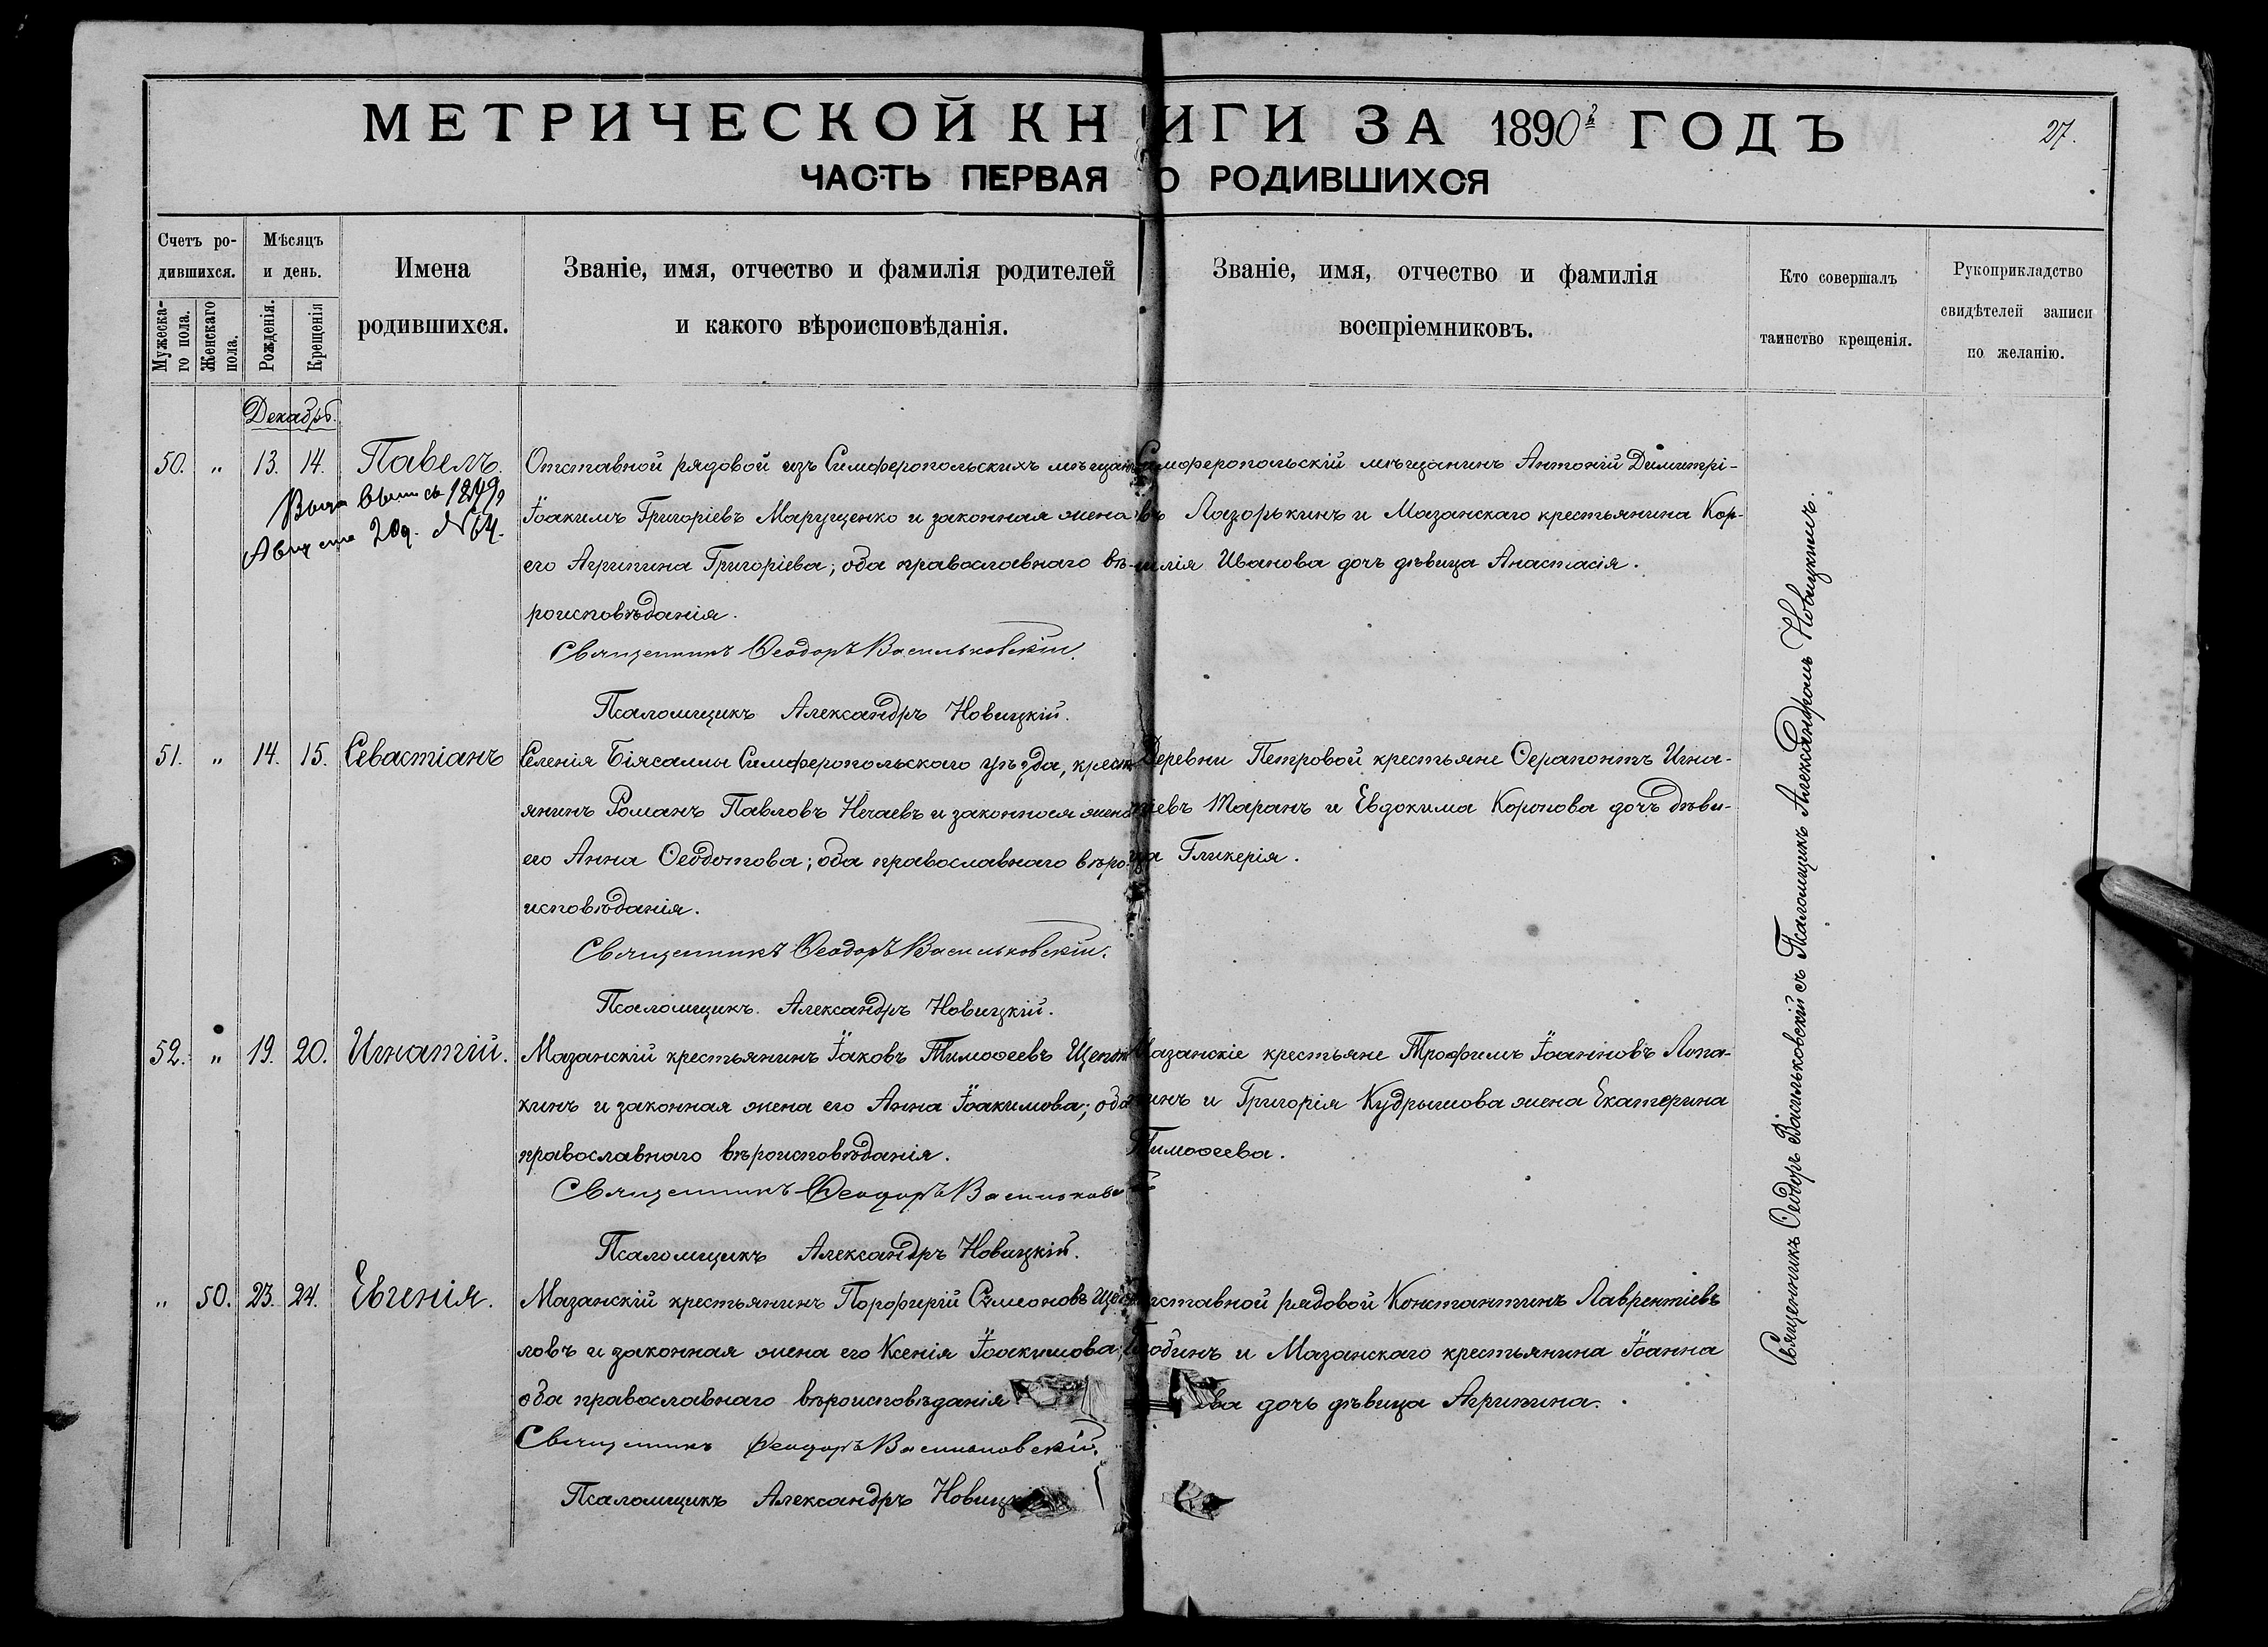 МЕТРИЧЕСКОЙ КНИГИ ЗА 1890й ГОДЪ
27.
ЧАСТЬ ПЕРВАЯ О РОДИВШИХСЯ
Счетъ ро-
дившихся.
Мужеска-
го пола.
Женскаго
пола.
Мѣсяцъ
и день.
Рожденія.
Крещенія
Имена
родившихся.
Званіе, имя, отчество и фамилія родителей
и какого вѣроисповѣданія.
Званіе, имя, отчество и фамилія
воспріемниковъ.
Кто совершалъ
таинство крещенія.
Рукоприкладство
свидѣтелей записи
по желанію.
Декабрь.
50. " 13. 14. Павелъ.
Августа 20д. №64.
Отставной рядовой изъ Симферопольскихъ мѣщанъ
Іоакимъ Григоріевъ Марущенко и законная жена
его Агрипина Григоріева; оба православнаго вѣ-
роисповѣданія.
Священникъ Ѳеодоръ Васильковскій.
Псаломщикъ Александръ Новицкій.
Симферопольскій мѣщанинъ Антоній Димитрі-
евъ Лазорькинъ и Мазанскаго крестьянина Кор-
нилія Иванова дочь дѣвица Анастасія.
51. " 14. 15. Севастіанъ
Селенія Біясалы Симферопольскаго уѣзда, крест-
янинъ Романъ Павловъ Нечаевъ и законная жена
его Анна Ѳеодотова; оба православнаго вѣро-
исповѣданія.
Священникъ Ѳеодоръ Васильковскій.
Псаломщикъ Александръ Новицкій.
Деревни Петровой крестьяне Серапонтъ Игна-
тіевъ Таранъ и Евдокима Коропова дочь дѣви-
ца Гликерія.
52. " 19. 20. Игнатій.
Мазанскій крестьянинъ Іаковъ Тимоѳеевъ Щепот-
кинъ и законная жена его Анна Іоакимова; оба
православнаго вѣроисповѣданія.
Священникъ Ѳеодоръ Васильковскій
Псаломщикъ Александръ Новицкій.
Мазанскіе крестьяне Трофимъ Іоанновъ Лопа-
тинъ и Григорія Кудрышова жена Екатерина
Тимоѳеева.
" 50. 23. 24. Евгенія.
Мазанскій крестьянинъ Порфирій Сѵмеоновъ
ловъ и законная жена его Ксенія Іоакимова;
оба православнаго вѣроисповѣданія
Священникъ Ѳеодоръ Васильковскій.
Псаломщикъ Александръ Новицкій
Отставной рядовой Константинъ Лаврентіевъ
и Мазанскаго крестьянина Іоанна
ва дочь дѣвица Агрипина.
Священникъ Ѳеодоръ Васильковскій съ Псаломщикъ Александромъ Новицкимъ.